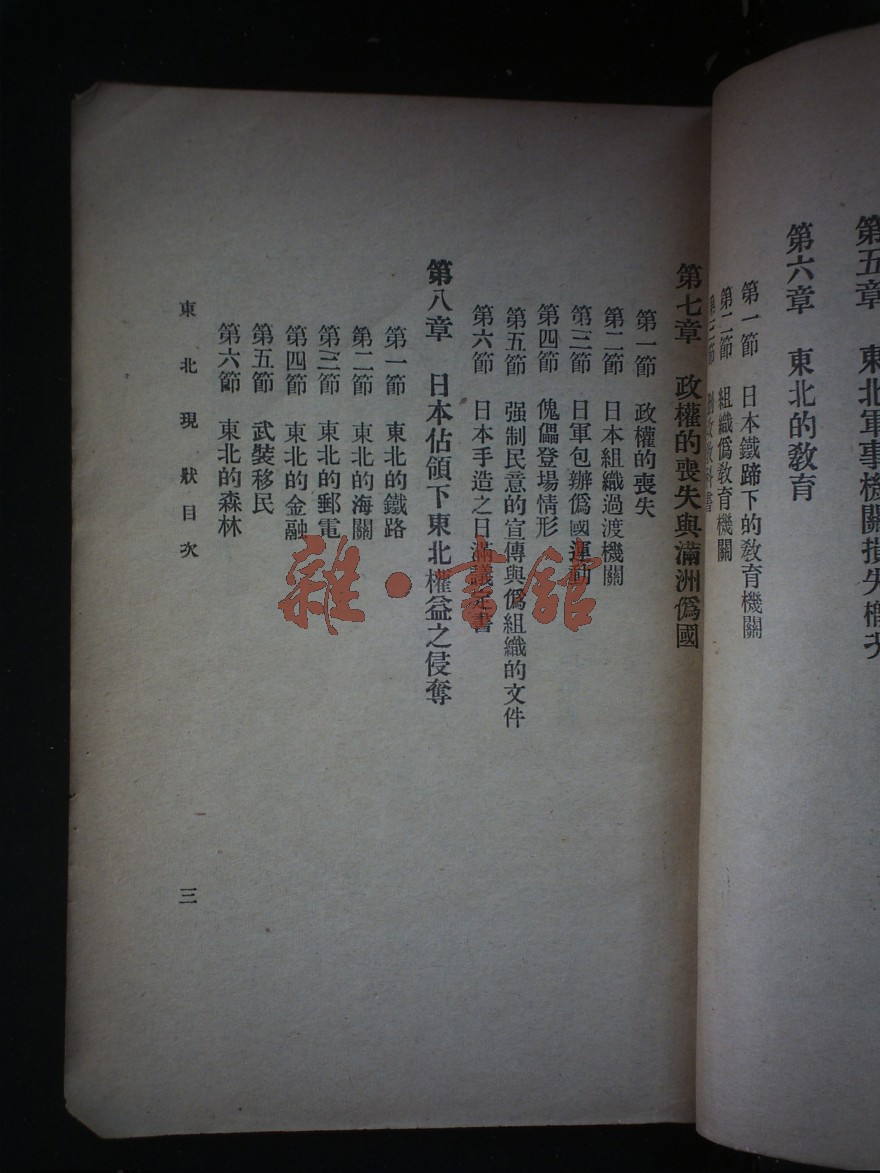 第五章　東北軍事機關損失概
第六章　東北的教育
第一節　日本鐵蹄下的教育機關
第二節　組織僞教育機關
第三節　教科書
第七章　政權的喪失與滿洲僞國
第一節　政權的喪失
第二節　日本組織過渡機關
第三節　日軍包辦僞國運動
第四節　傀儡登場情形
第五節　强制民意的宣傳與僞組織的文件
第六節　日本手造之日滿議定書
第八章　日本佔領下東北權益之侵奪
第一節　東北的鐵路
第二節　東北的海關
第三節　東北的郵電
第四節　東北的金融
第五節　武裝移民
第六節　東北的森林
東北現狀目次
三
雜·書館